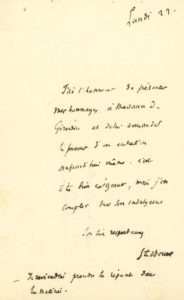 Lundi 22.
J'ai l'honneur de présenter
mes hommages à Madame de
Girardin et de lui demander
la faveur d'un entretien
aujourd'hui même. c'est
être très exigeant, mais j'ose
compter sur son indulgence
Son très respectueux
Je reviendrai prendre la réponse dans
la matinée.